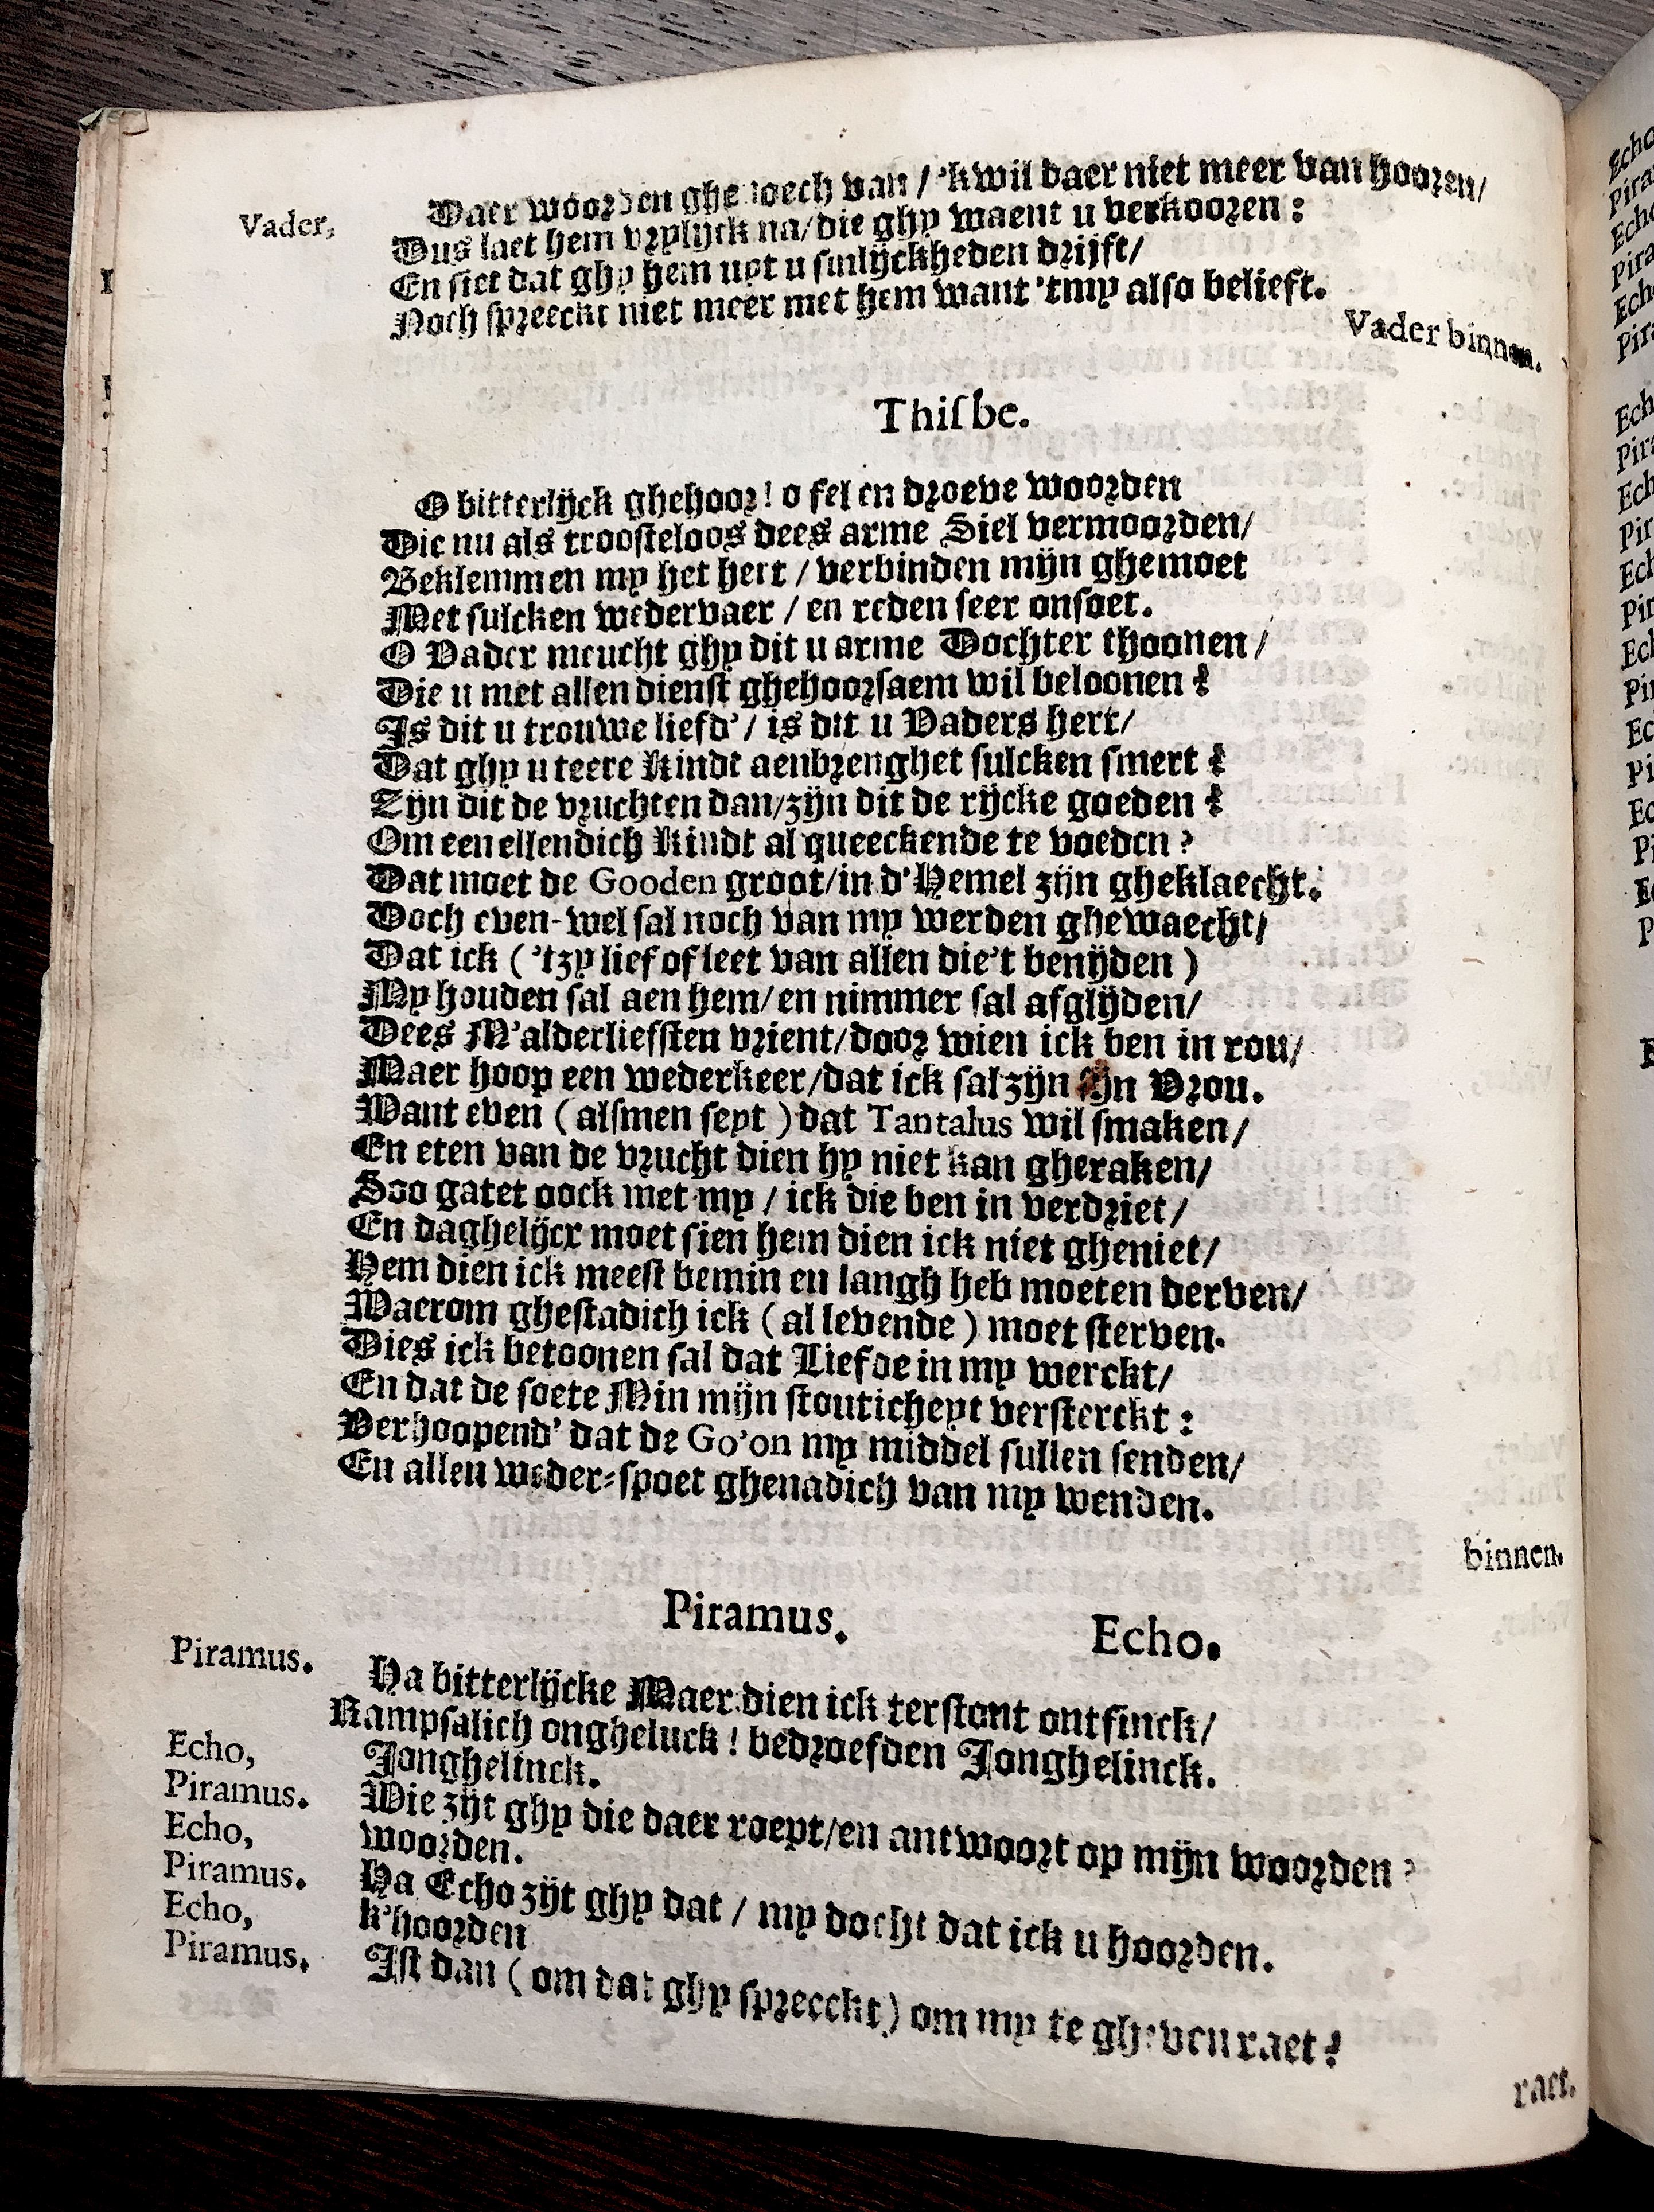 Vader, Daer woorden ghenoech van / 'k wil daer niet meer van hooren/
Dus laet hem vrylijck na/die ghy waent u verkooren:
En siet dat ghy hem uyt u sinlijckheden drijft/
Noch spreeckt niet meer met hem want 'tmy also belieft.
Vader binnen.
Thisbe.
O bitterlijck ghehoor! o fel en droeve woorden
Die nu als troosteloos dees arme Siel vermoorden/
Beklemmen my het hert / verbinden mijn ghemoet
Met sulcken wedervaer / en reden seer onsoet.
O Vader meucht ghy dit u arme Dochter thoonen/
Die u met allen dienst ghehoorsaem wil beloonen?
Is dit u trouwe liefd'/ is dit u Vaders hert/
Dat ghy u teere Kindt aenbrenghet sulcken smert?
Zijn dit de vruchten dan/zijn dit de rijcke goeden?
Om een ellendich Kindt al queeckende te voeden?
Dat moet de Gooden groot/in d'Hemel zijn gheklaecht.
Doch even-wel sal noch van my werden ghewaecht/
Dat ick ('tzy lief of leet van allen die't benijden)
My houden sal aen hem/en nimmer sal afglijden/
Dees M'alderliefsten vrient/door wien ick ben in rou/
Maer hoop een wederkeer/dat ick sal zijn sijn Vrou.
Want even (alsmen seyt) dat Tantalus wil smaken/
En eten van de vrucht dien hy niet kan gheraken/
Soo gatet oock met my / ick die ben in verdriet/
En daghelijcx moet sien hem dien ick niet gheniet/
Hem dien ick meest bemin en langh heb moeten derven/
Waerom ghestadich ick (al levende) moet sterven.
Dies ick betoonen sal dat Liefde in my werckt/
En dat de soete Min mijn stouticheyt versterckt:
Verhoopend' dat de Go'on my middel sullen senden/
En allen weder-spoet ghenadich van my wenden.
binnen.
Piramus. Echo.
Piramus. Ha bitterlijcke Maer dien ick terstont ontfinck/
Rampsalich ongheluck! bedroefden Jonghelinck.
Echo, Jonghelinck.
Piramus. Wie zijt ghy die daer roept/en antwoort op mijn woorden?
Echo, woorden.
Piramus. Ha Echo zijt ghy dat / my docht dat ick u hoorden.
Echo, k'hoorden
Piramus. Ist dan (om dat ghy spreeckt) om my te gheven raet?
raet.